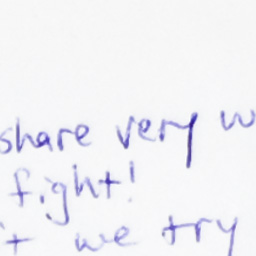 share very w
fight!
't we try